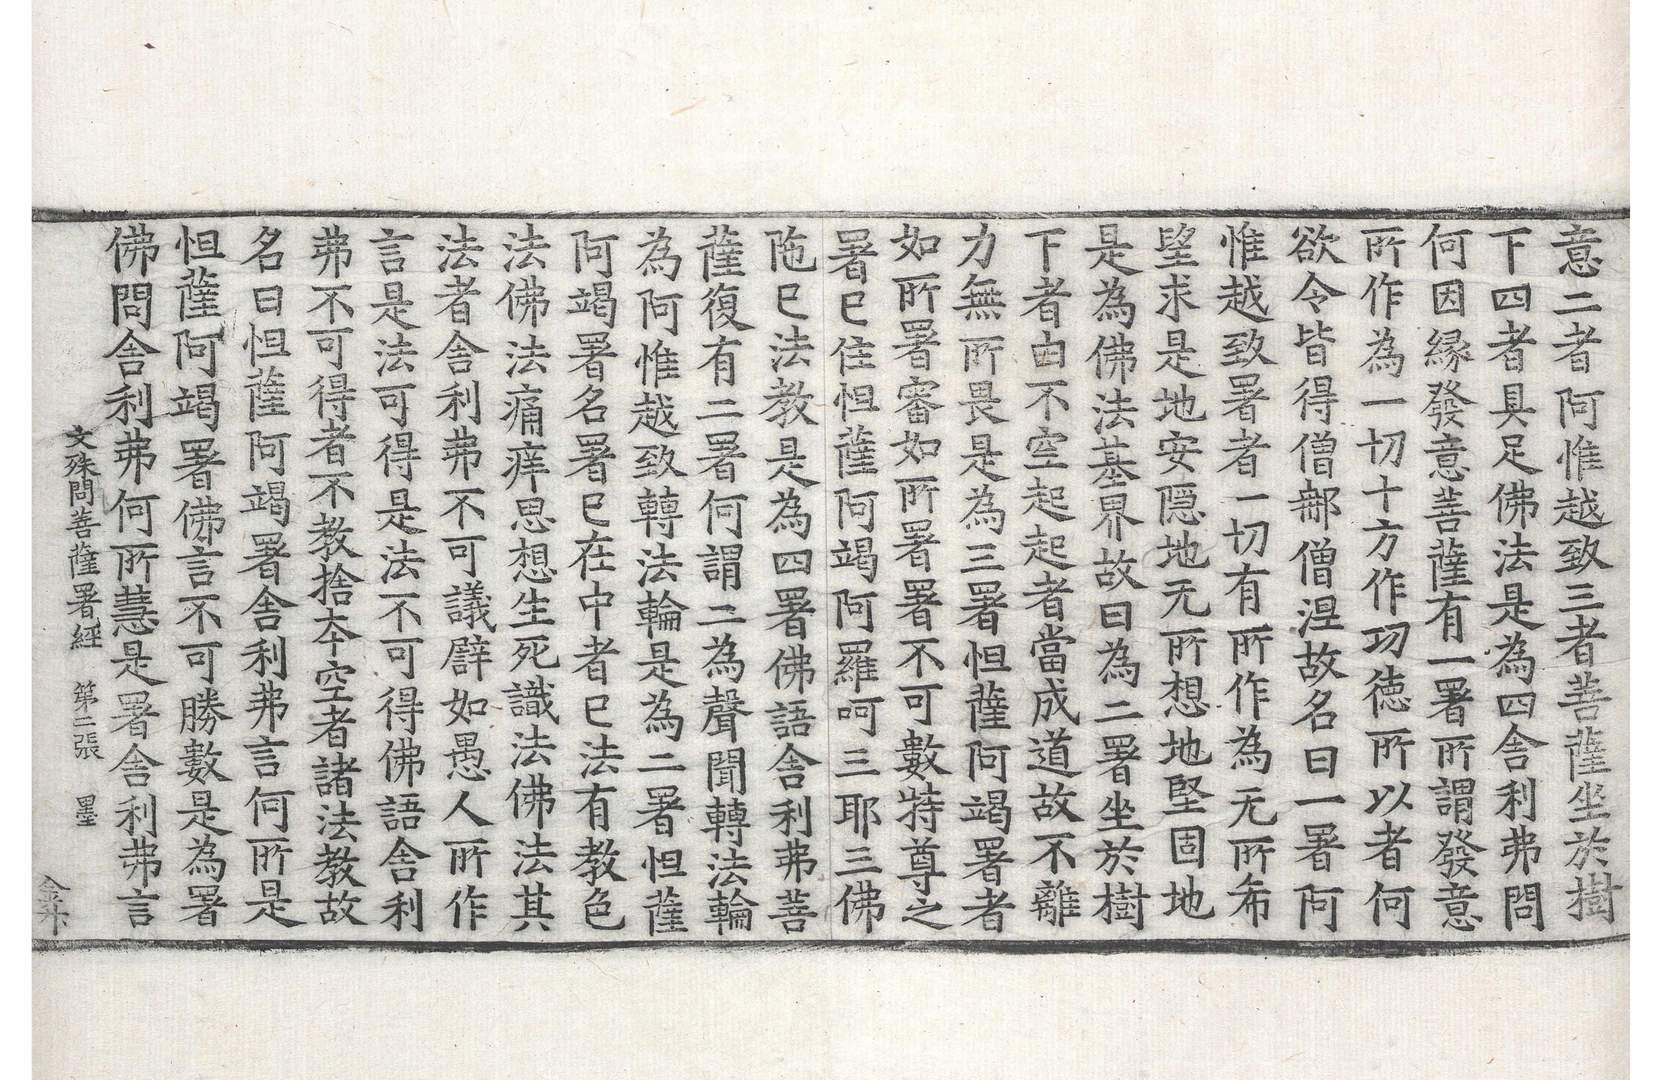 意二者阿惟越致三者菩薩坐於樹
下四者具足佛法是為四舍利弗問
何因縁發意菩薩有一署所謂發意
所作為一切十方作功徳所以者何
欲令皆得僧那僧涅故名曰一署阿
惟越致署者一切有所作為无所希
望求是地安隠地无所想地堅固地
是為佛法基界故曰為二署坐於樹
下者由不空起起者當成道故不離
力無所畏是為三署怛薩阿竭署者
如所署審如所署署不可數特尊之
署巳住怛薩阿竭阿羅呵三耶三佛
陁巳法教是為四署佛語舍利弗菩
薩復有二署何謂二為聲聞轉法輪
為阿惟越致轉法輪是為二署怛薩
阿竭署名署巳在中者巳法有教色
法佛法痛痒思想生死識法佛法其
法者舍利弗不可議譬如愚人所作
言是法可得是法不可得佛語舍利
弗不可得者不教捨本空者諸法教故
名曰怛薩阿竭署舍利弗言何所是
怛薩阿竭署佛言不可勝數是為署
佛問舍利弗何所慧是署舍利弗言
文殊問菩薩署經　第二張　墨